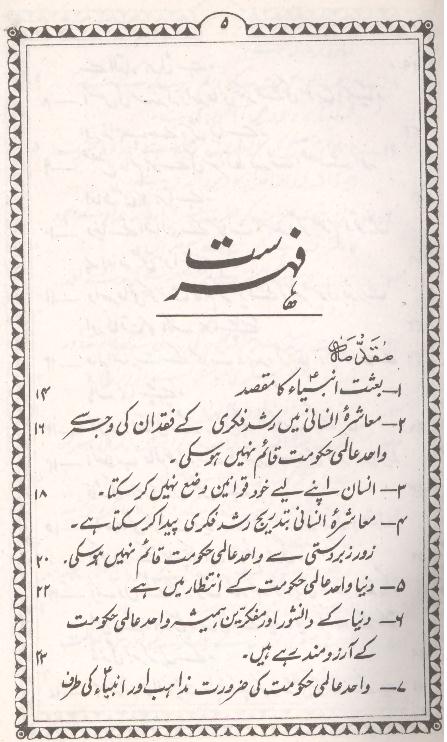 ۵
فہرست
مقدمات
۱— بعثت انبیاءؑ کا مقصد ۱۴
۲— معاشرۂ انسانی میں رشد فکری کے فقدان کی وجہ سے ۱۶
واحد عالمی حکومت قائم نہیں ہوسکی۔
۳— انسان اپنے لیے خود قوانین وضع نہیں کرسکتا۔ ۱۸
۴— معاشرۂ انسانی بتدریج رشد فکری پیدا کرسکتا ہے۔
زور زبردستی سے واحد عالمی حکومت قائم نہیں ہوسکی۔ ۲۰
۵— دنیا واحد عالمی حکومت کے انتظار میں ہے ۲۲
۶— دنیا کے دانشور اور مفکرین ہمیشہ واحد عالمی حکومت
کے آرزومند رہے ہیں۔ ۲۳
۷— واحد عالمی حکومت کی ضرورت مذاہب اور انبیاءؑ کی طرف